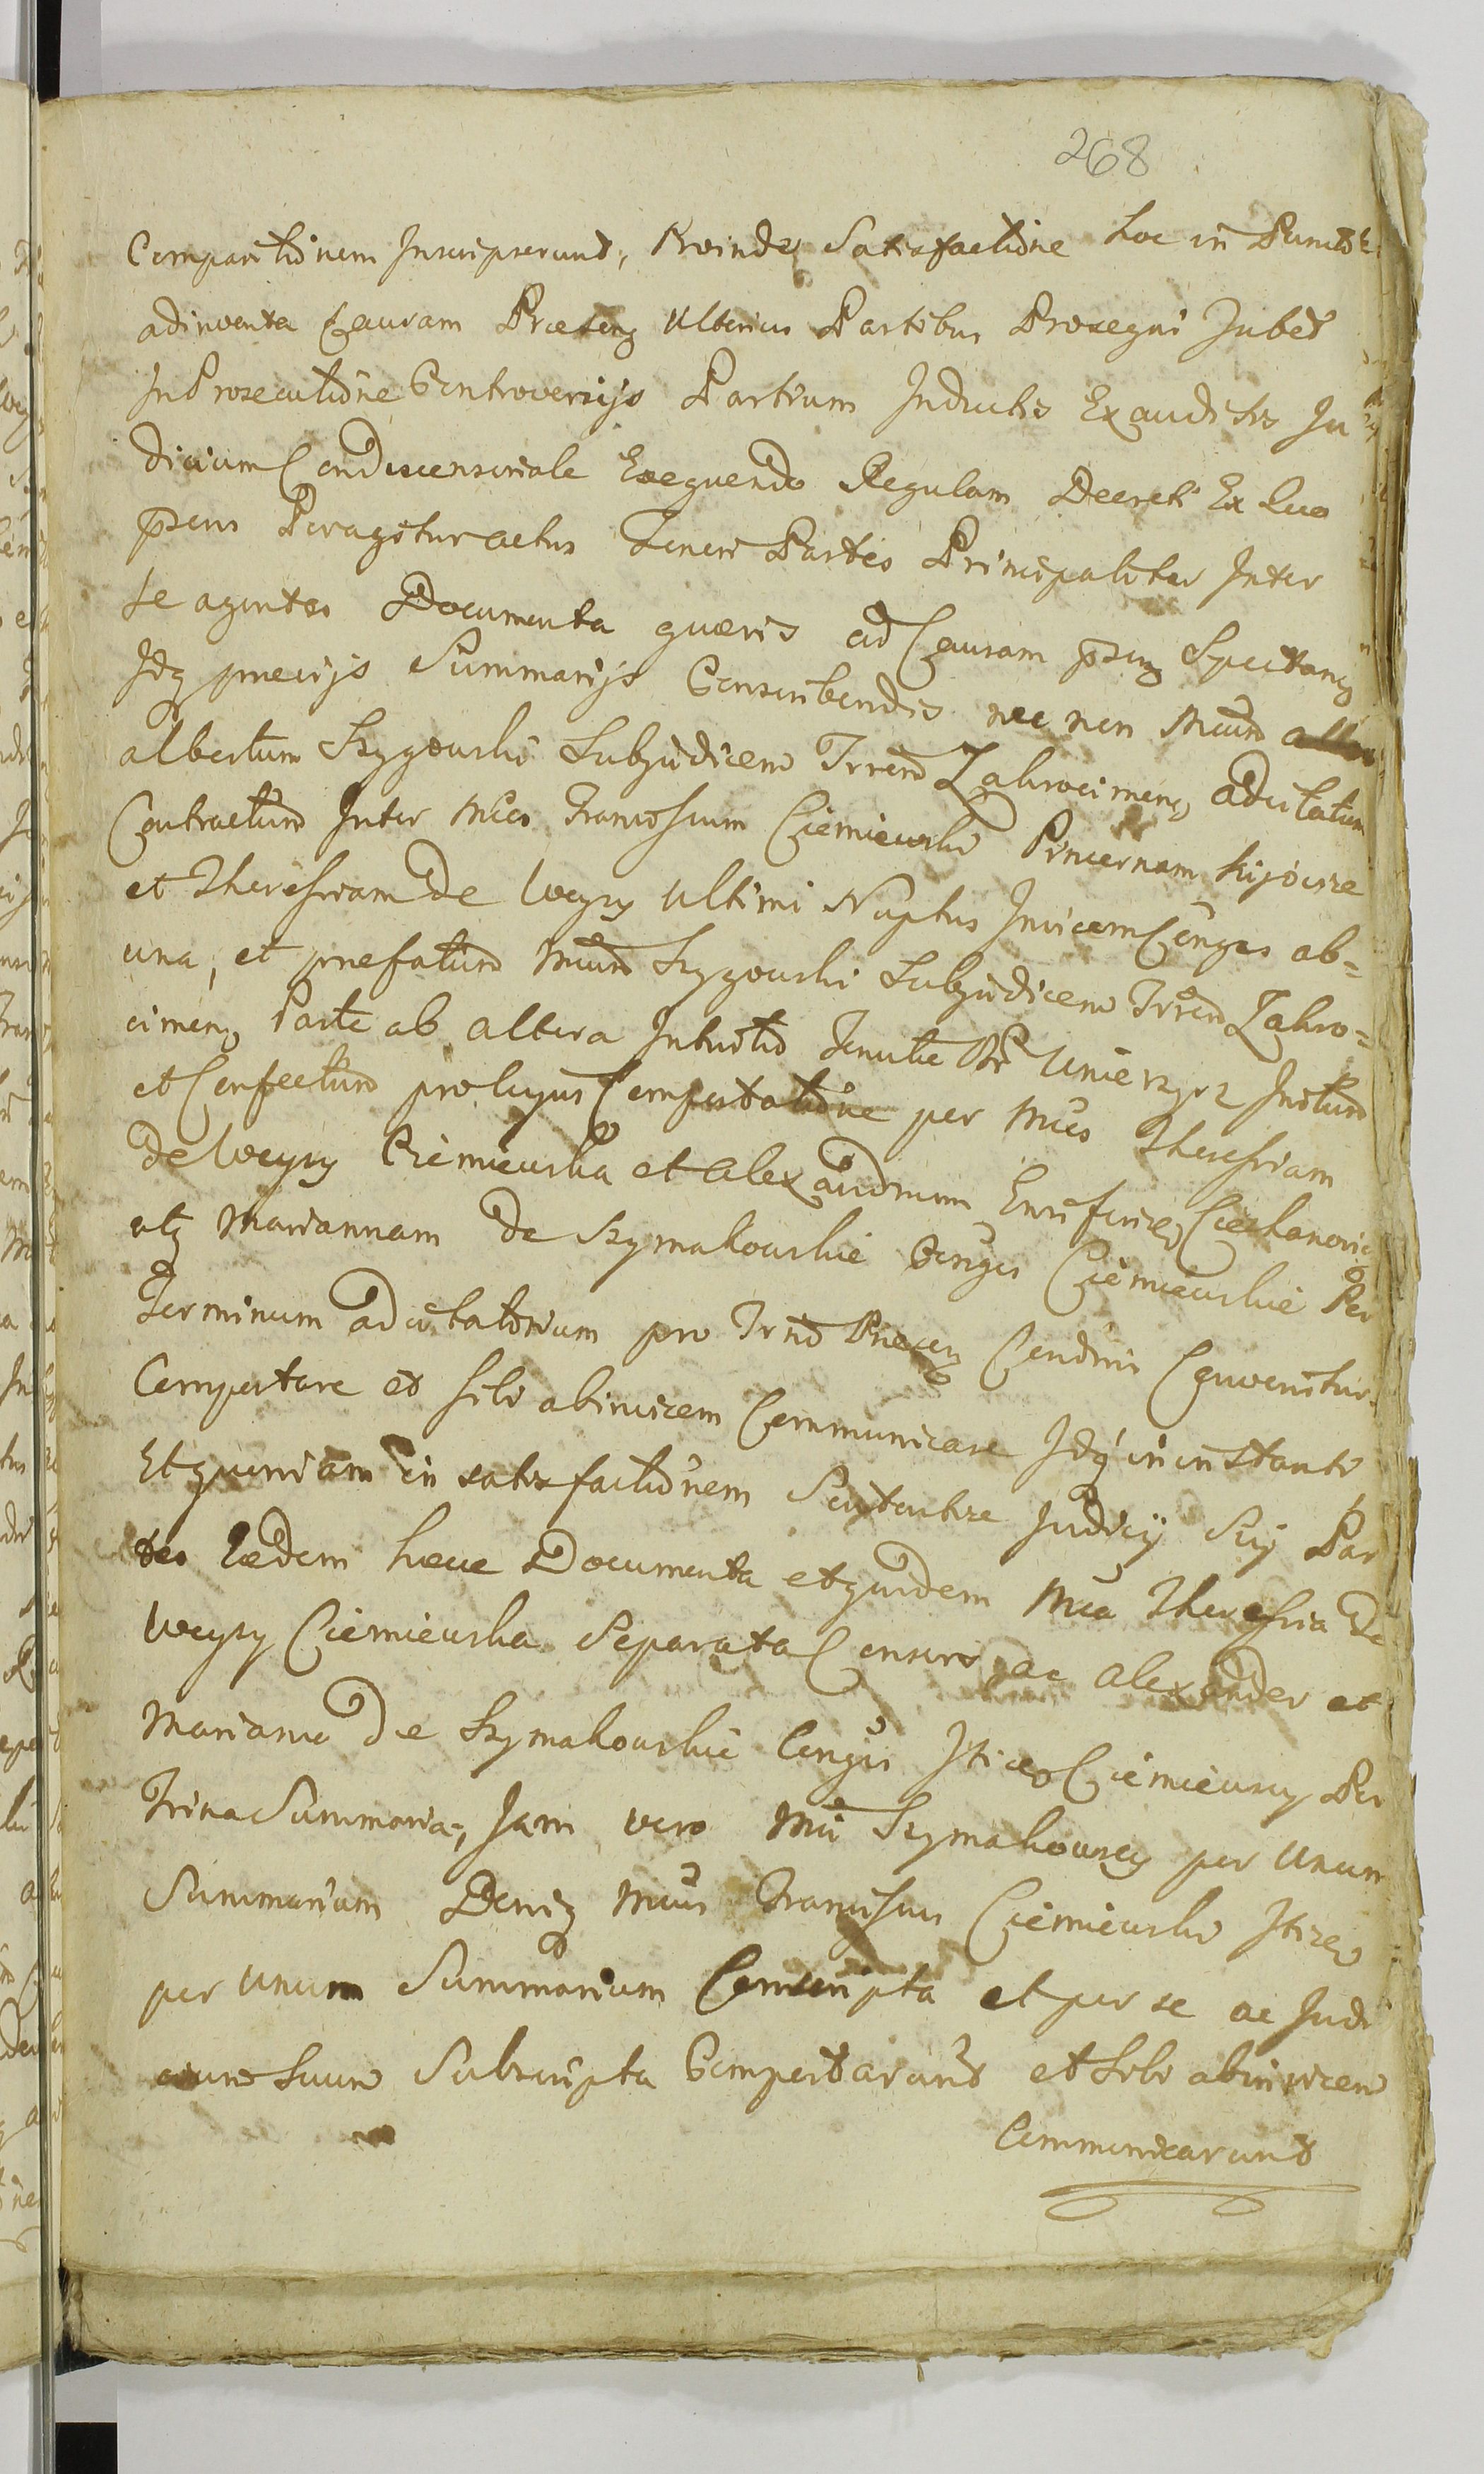 268
Comparitionem Inscripserunt, Proinde Satisfactione hoc in Puncto
adinventa Causam Praesenz ulterius Partibus Prosequi Jubet
In Prosecutione Controversijs Partium Inductis Exauditis Ju
dicium Condescensoriale Exequendo Regulam Decreti Ex Quo
p̄sens Peragitur actus Teneri Partes Principaliter Inter
se agentes Documenta quaevis ad Causam p̄senz Spectanz
Idq praevijs Summarijs Conscribendis nec non Mcum
albertum Szygowski Subjudicem Trren Zakrocimenz adcitatum
Contractum Inter Mcos Franciscum Ciemiewski Pincernam Kijoviae
et Theresiam De Weysy ultimi Nuptus Invicem Conges ab=
una, et praefatum Mcum Szygowski Subjudicem Trren Zakro=
cimenz Parte ab altera Intuitu Tenutae Br Unierzyz Initum
et Confectum pro cujus Comportatione per Mcos Theresiam
De Weysy Ciemiewska et Alexandrum Ensiferiz Ciechanoviz
atq Mariannam De Szymakowskie Conges Ciemiewskie Per
Terminum adcitatorium pro Trno Praesenz Condni Convenitur
Comportare et sibi abinvicem Communicare Idq in instanti
Et quoniam in satisfactionem Sententiae Judicij Sui Par
tes Eaedem haece Documenta et quidem Mca Theresia De
Weysy Ciemiewska Separata Consors ac Alexander et
Marianna De Szymakowskie Conges Itices Ciemiewscy Per
Trina Summaria, Jam vero Mci Szymakowscy per Unum
Summarium Deniq Mcus Franciscus Ciemiewski
per Unum Summarium Conscripta et per se ac Judi
cium suum Subscripta Comportarunt et sibi abinvicem
Communicarunt